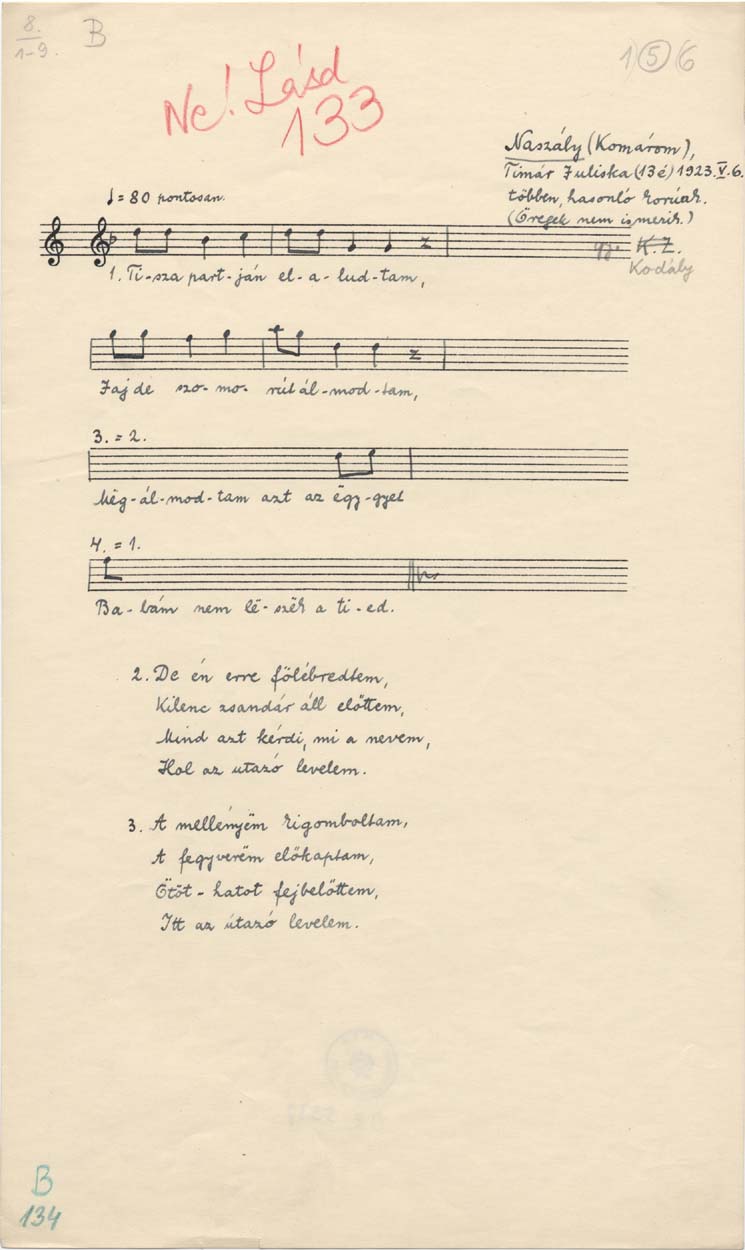 8.
1-9.
B
1 5 6
Ne! Lásd
133
Naszály (Komárom),
Timár Juliska (13é) 1923. V. 6.
többen, hasonló korúak.
(Öregek nem ismerik.)
gy. K. Z.
Kodály
♩= 80 pontosan.
1. Ti-sza part-ján el-a-lud-tam,
Jaj de szo-mo-rút ál-mod-tam,
3. = 2.
Még-ál-mod-tam azt az ëgy-gyet
4. = 1.
Ba-bám nem lë-szëk a ti-ed.
2. De én erre fölébredtem,
Kilenc zsandár áll előttem,
Mind azt kérdi, mi a nevem,
Hol az utazó levelem.
3. A mellényëm kigomboltam,
A fegyverëm előkaptam,
Ötöt-hatot fejbelőttem,
Itt az útazó levelem.
B
134